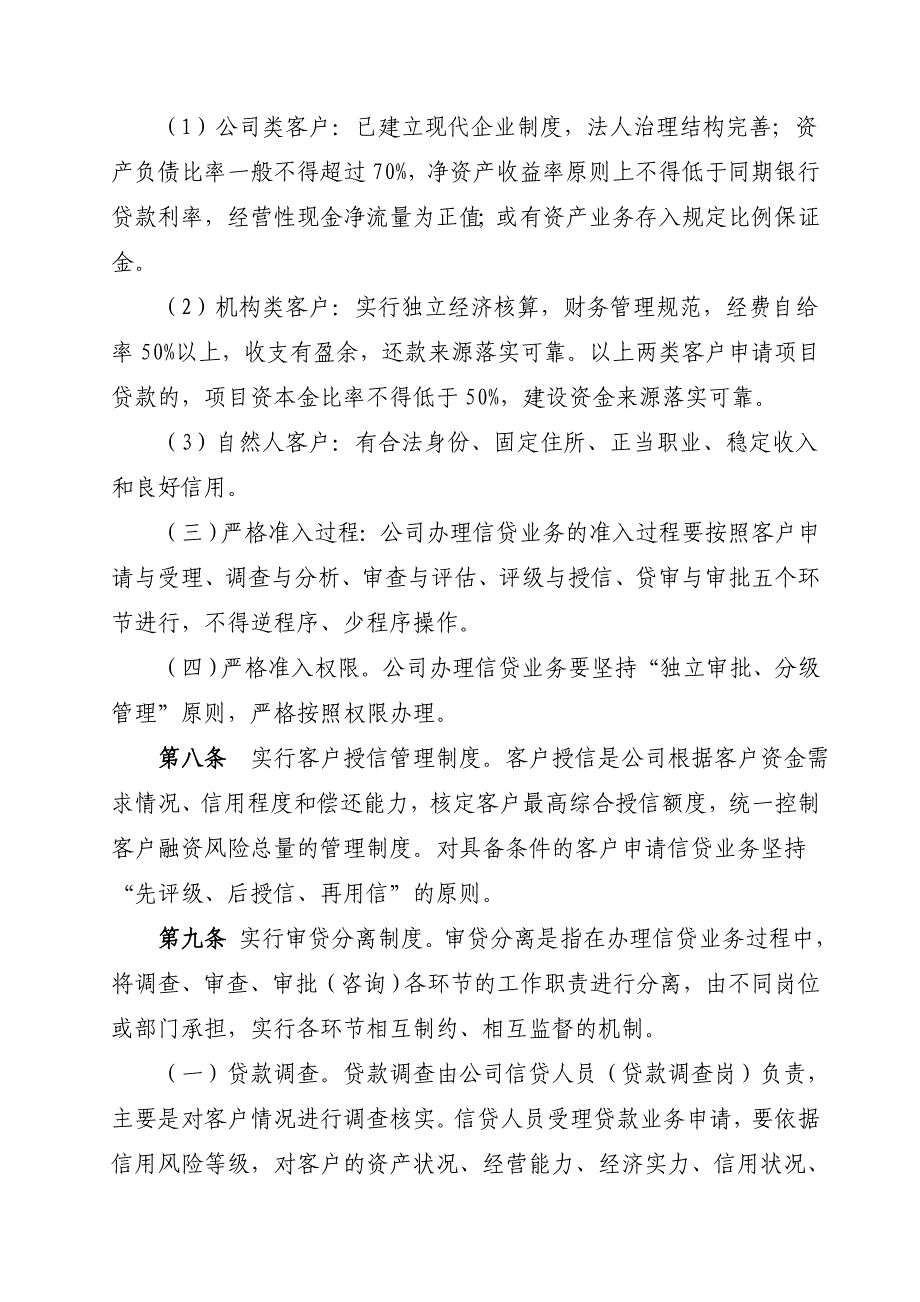 （1）公司类客户：已建立现代企业制度，法人治理结构完善；资
产负债比率一般不得超过 70%，净资产收益率原则上不得低于同期银行
贷款利率，经营性现金净流量为正值；或有资产业务存入规定比例保证
金。
（2）机构类客户：实行独立经济核算，财务管理规范，经费自给
率 50%以上，收支有盈余，还款来源落实可靠。以上两类客户申请项目
贷款的，项目资本金比率不得低于 50%，建设资金来源落实可靠。
（3）自然人客户：有合法身份、固定住所、正当职业、稳定收入
和良好信用。
（三）严格准入过程：公司办理信贷业务的准入过程要按照客户申
请与受理、调查与分析、审查与评估、评级与授信、贷审与审批五个环
节进行，不得逆程序、少程序操作。
（四）严格准入权限。公司办理信贷业务要坚持“独立审批、分级
管理”原则，严格按照权限办理。
第八条　实行客户授信管理制度。客户授信是公司根据客户资金需
求情况、信用程度和偿还能力，核定客户最高综合授信额度，统一控制
客户融资风险总量的管理制度。对具备条件的客户申请信贷业务坚持
“先评级、后授信、再用信”的原则。
第九条 实行审贷分离制度。审贷分离是指在办理信贷业务过程中，
将调查、审查、审批（咨询）各环节的工作职责进行分离，由不同岗位
或部门承担，实行各环节相互制约、相互监督的机制。
（一）贷款调查。贷款调查由公司信贷人员（贷款调查岗）负责，
主要是对客户情况进行调查核实。信贷人员受理贷款业务申请，要依据
信用风险等级，对客户的资产状况、经营能力、经济实力、信用状况、